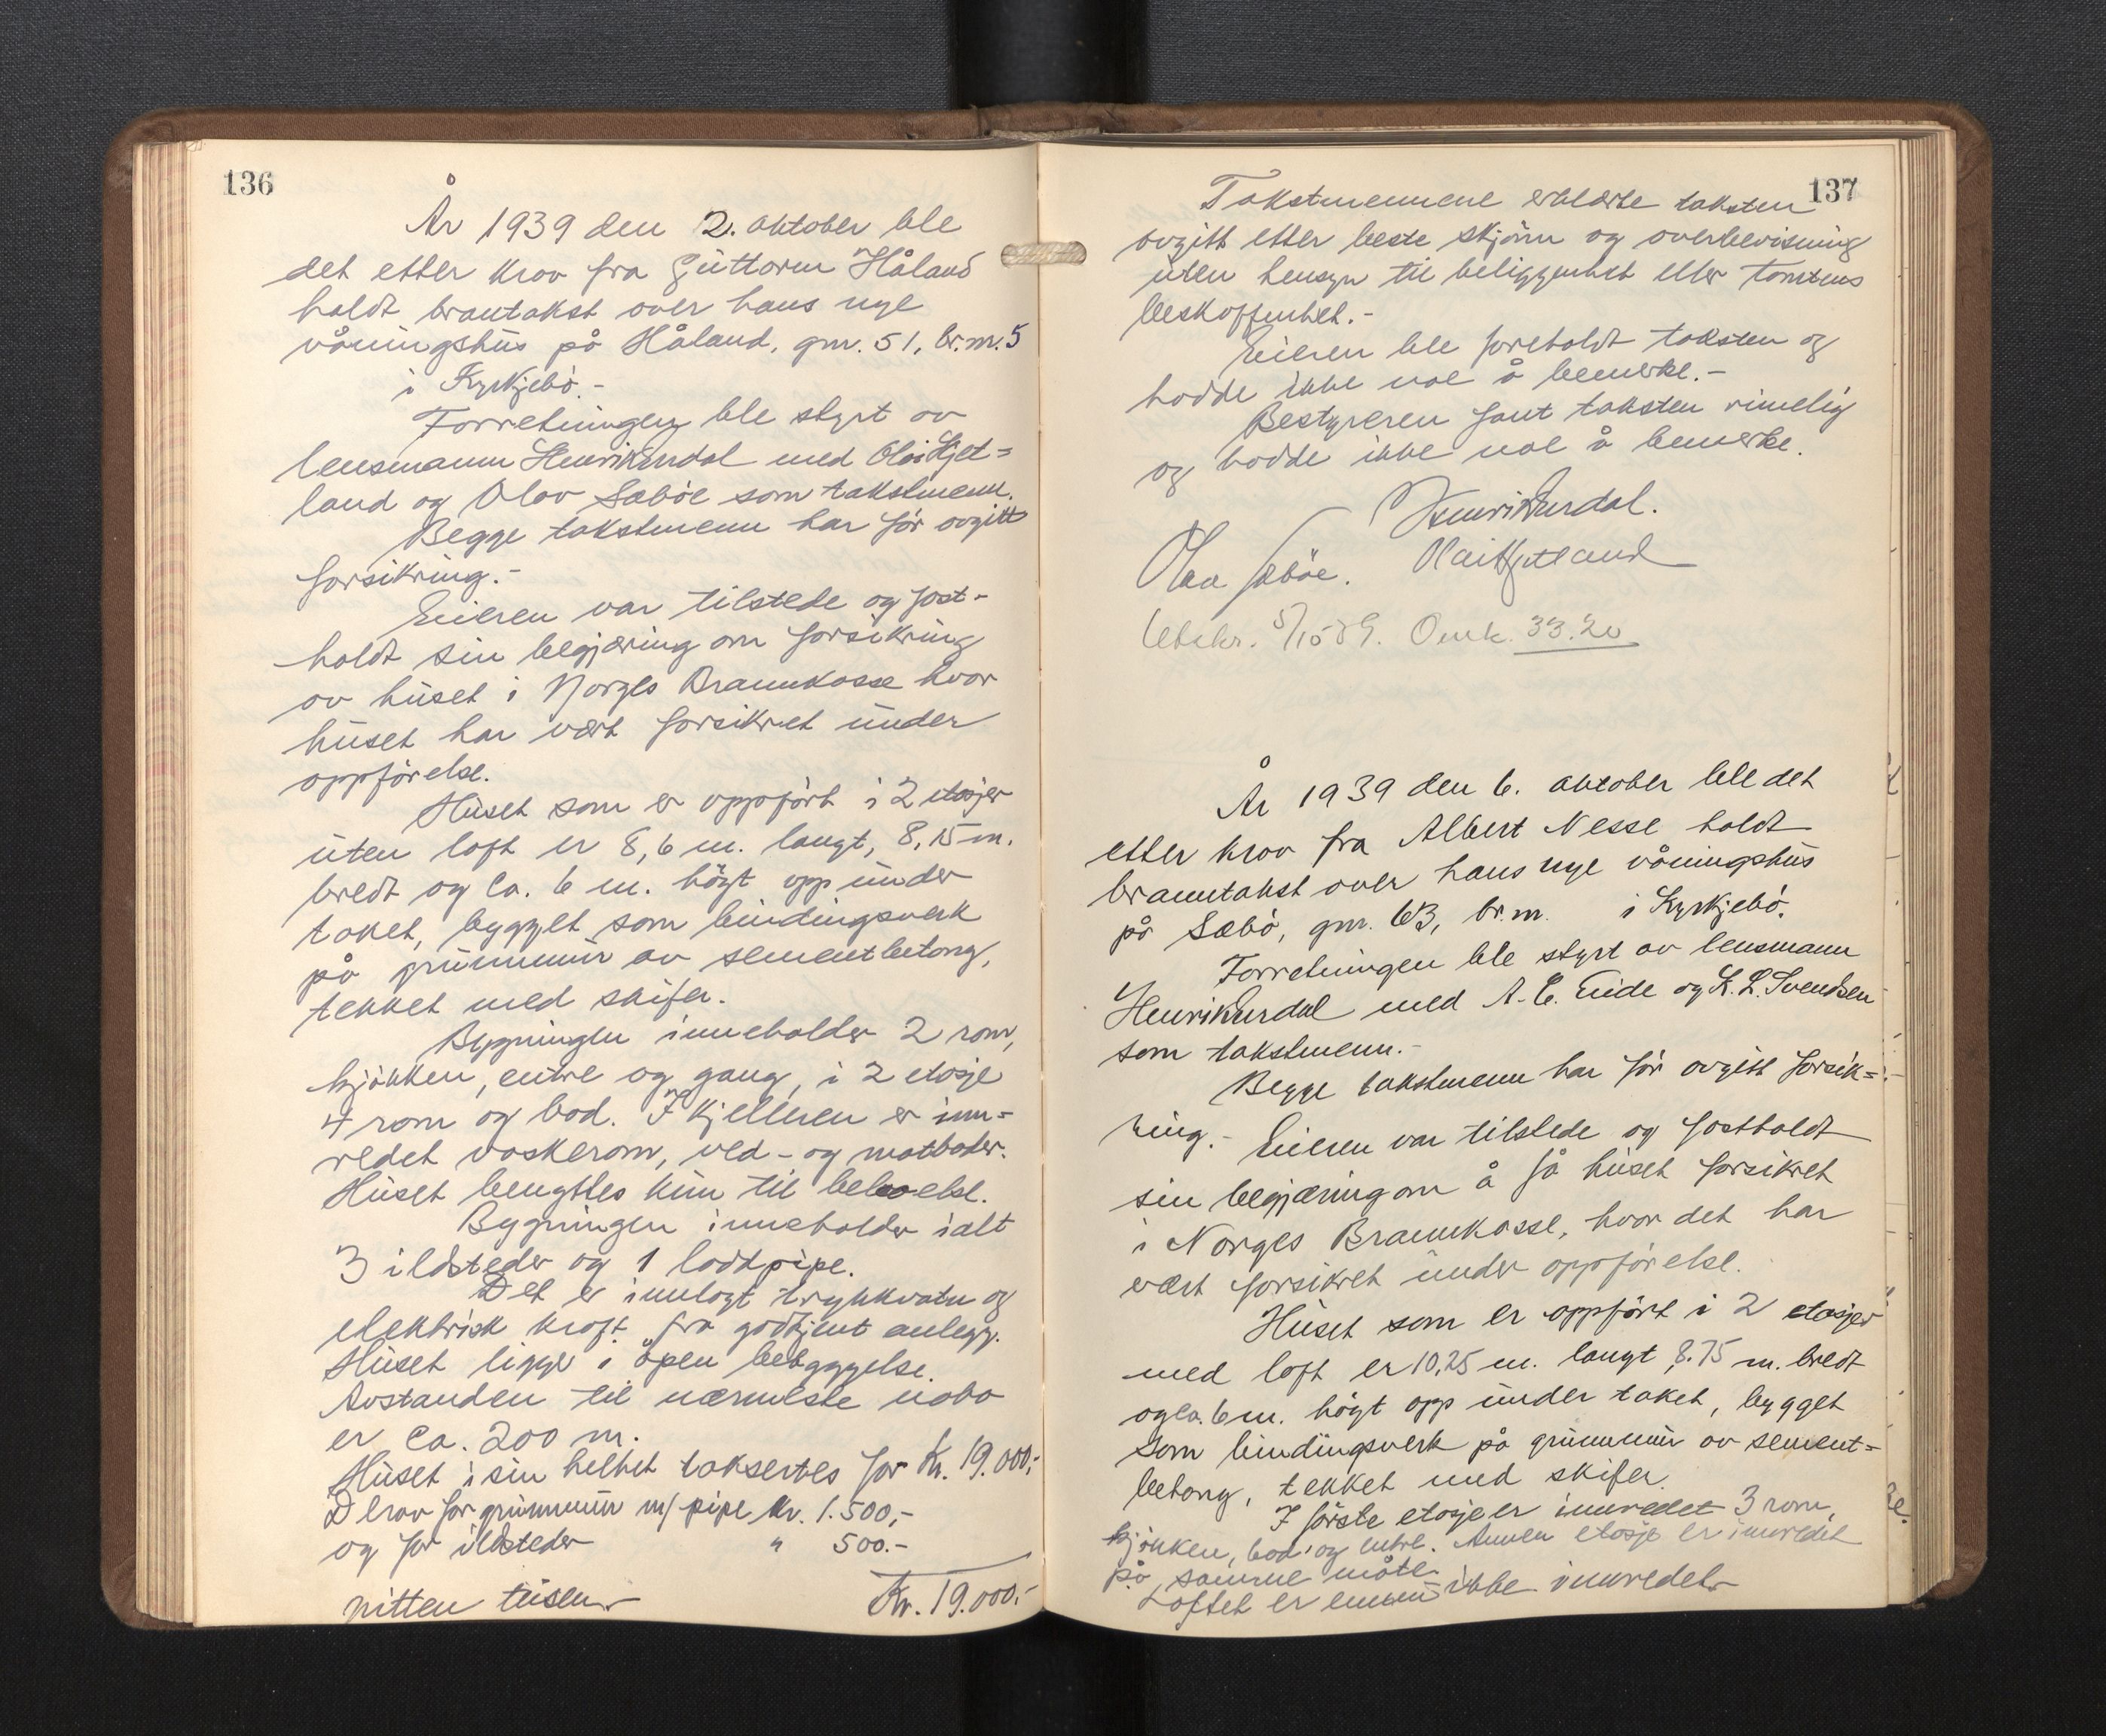 136
År 1939 den 2. oktober ble
det etter krav fra Guttorm Håland
holdt branntakst over hans nye
våningshus på Håland, gnr. 51, br.nr. 5
i Kyrkjebø.-
Forretningen ble styrt av
lensmann Henrik Erdal med Olai Kjet=
land og Olav Sæbøe som takstmenn.
Begge takstmenn har før avgitt
forsikring.-
Eieren var tilstede og fast-
holdt sin begjæring om forsikring
av huset i Norges Brannkasse hvor
huset har vært forsikret under
oppførelse.
Huset som er oppført i 2 etasjer
uten loft er 8,6 m. langt, 8,15 m.
bredt og ca. 6 m. høgt opp under
taket, bygget som bindingsverk
på grunnmur av sementbetong,
tekket med skifer.
Bygningen inneholder 2 rom,
kjøkken, entre og gang, i 2 etasje
4 rom og bod. I kjelleren er inn=
redet vaskerom, ved- og matboder.
Huset benyttes kun til beboelse.
Bygningen inneholder ialt
3 ildsteder og 1 loddpipe.
Det er innlagt trykkvatn og
elektrisk kraft fra godkjent anlegg.
Huset ligger i åpen bebyggelse.
Avstanden til nærmeste nabo
er ca. 200 m.
Huset i sin helhet takseres for Kr. 19.000,-
Derav for grunnmur m/ pipe kr. 1.500,-
og for ildsteder " 500.-
nitten tusen Kr. 19.000,-
137
Takstmennene erklærte taksten
avgitt etter beste skjønn og overbevisning
uten hensyn til beliggenhet eller tomtens
beskaffenhet.-
Eieren ble foreholdt taksten og
hadde ikke noe å bemerke.-
Bestyreren fant taksten rimelig
og hadde ikke noe å bemerke.
Henrik Erdal.
Olav Sæbøe. Olai Kjetland
Utskr. 5/10 39. Omk. 33.20
År 1939 den 6. oktober ble det
etter krav fra Albert Nesse holdt
branntakst over hans nye våningshus
på Sæbø, gnr. 63, br.nr. i Kyrkjebø.
Forretningen ble styrt av lensmann
Henrik Erdal med A. E. Eide og K. L. Svendsen
som takstmenn.-
Begge takstmenn har før avgitt forsik=
ring.- Eieren var tilstede og fastholdt
sin begjæring om å få huset forsikret
i Norges Brannkasse, hvor det har
vært forsikret under oppførelse.
Huset som er oppført i 2 etasjer
med loft er 10,25 m. langt, 8.75 m. bredt
og ca. 6 m. høgt opp under taket, bygget
som bindingsverk på grunnmur av sement=
betong, tekket med skifer.
I første etasje er innredet 3 rom,
kjøkken, bod og entre. Annen etasje er innredet
på samme måte.
Loftet er ennu ikke innredet